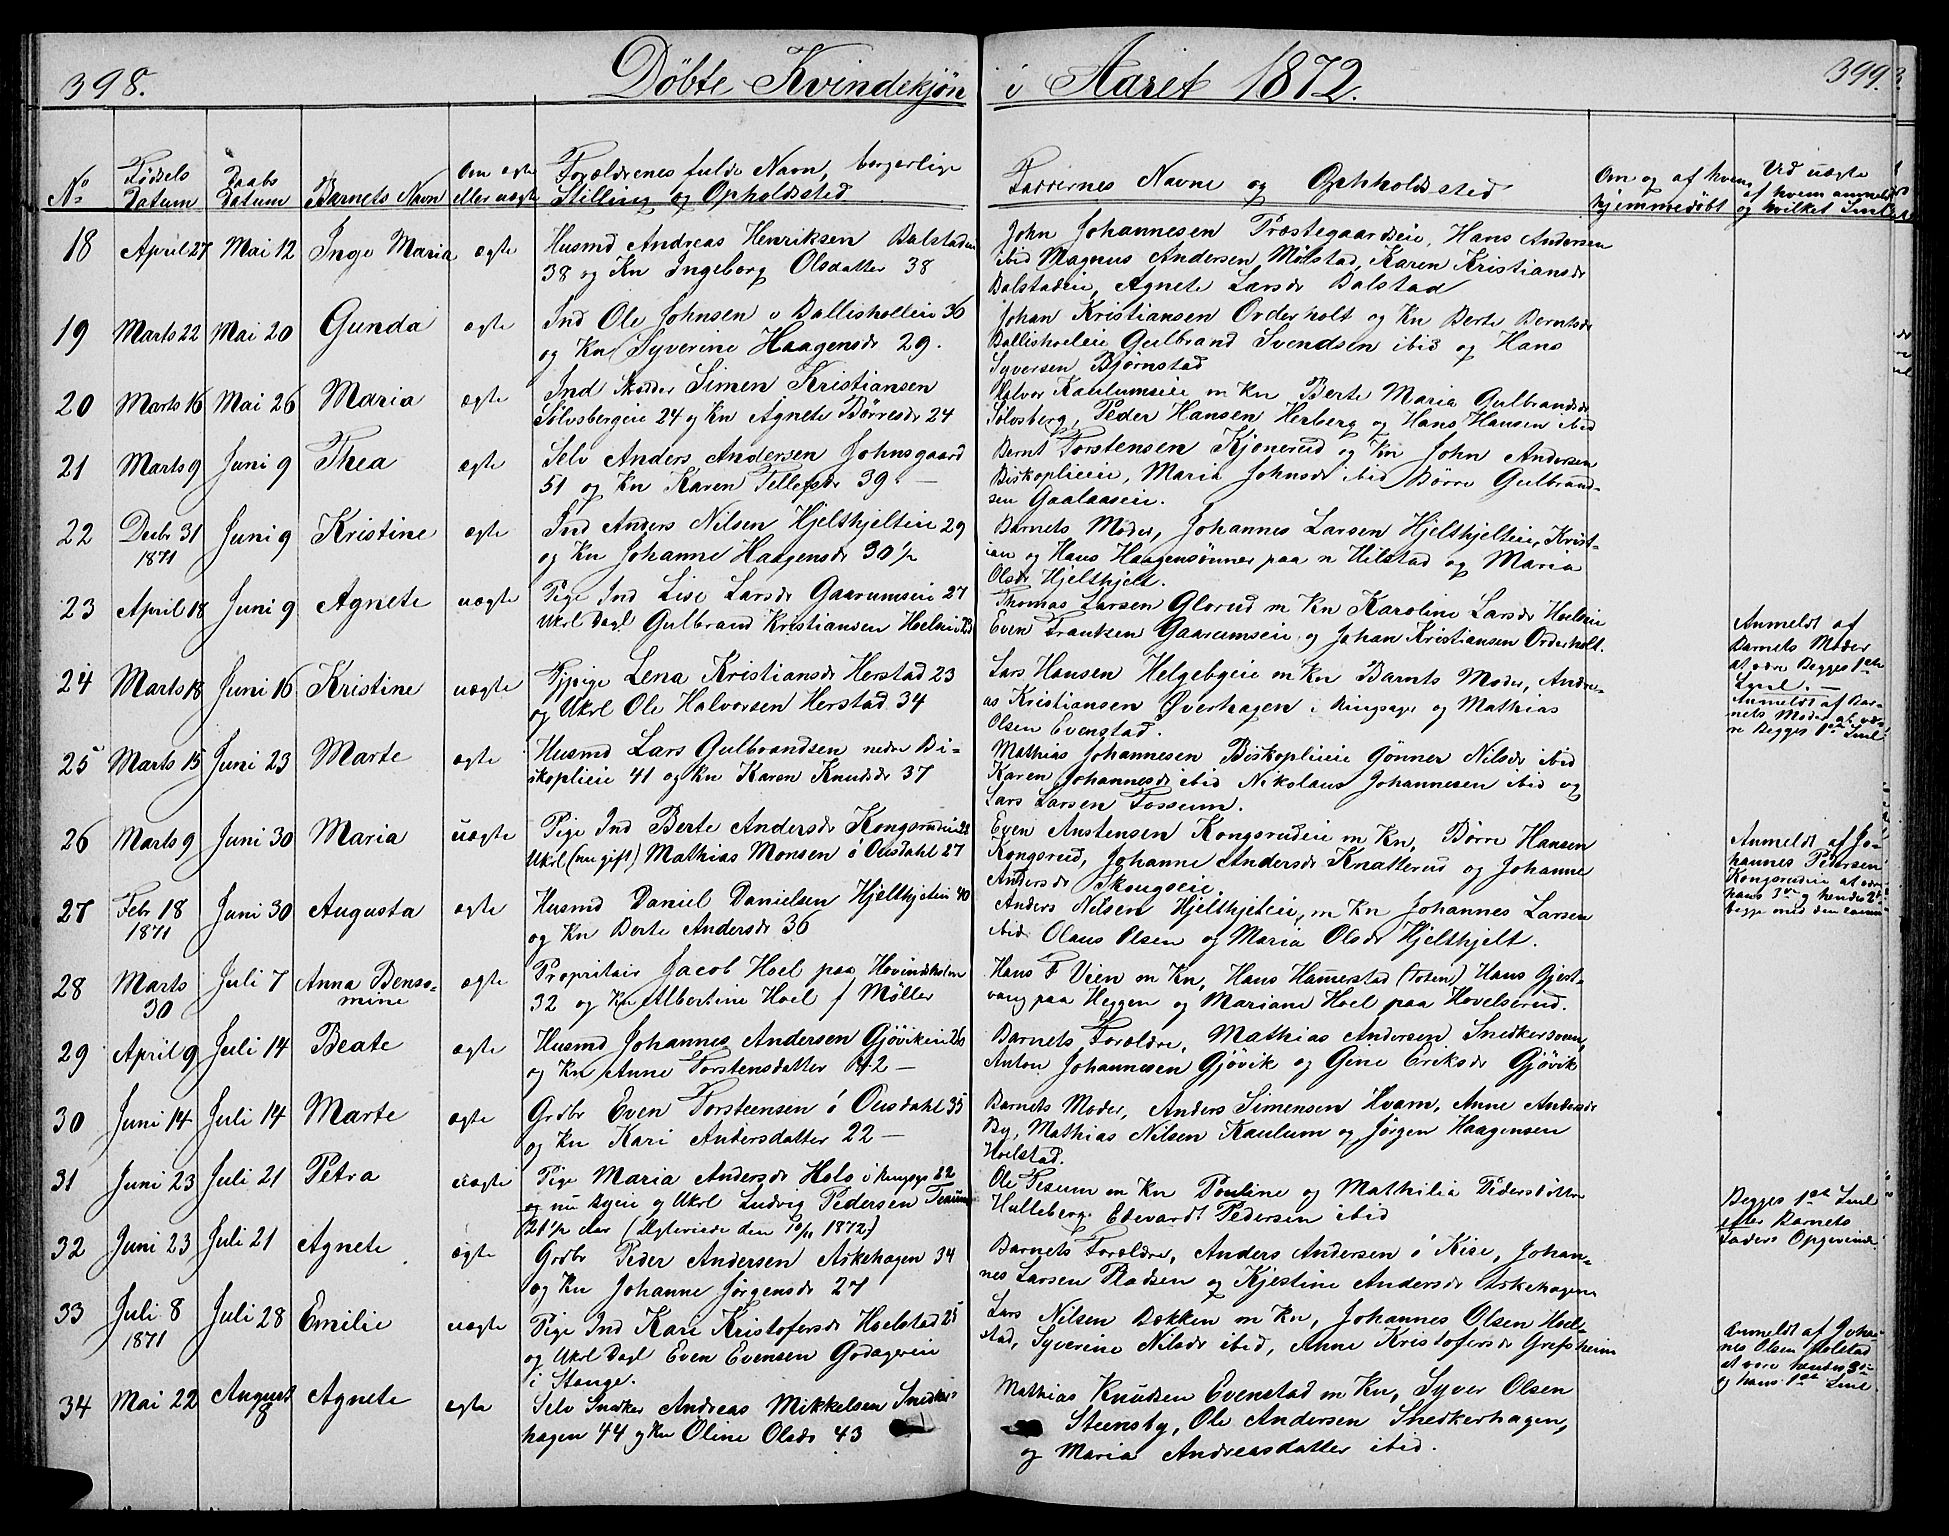 398. Døbte Kvindekjøn i Aaret 1872. 399.
No Fødsels Datum Daabs Datum Barnets Navn Om ægte eller uægte Forældrenes fulde Navn, borgerlige Stilling og Opholdssted Faddernes Navne og Opholdssted Om og af hvem hjemmedøbt Ved uægte af hvem anmeldt og hvilket
18 April 27 Mai 12 Inge Maria ægte Husmd Andreas Henriksen Balstadeie
38 og Kn Ingeborg Olsdatter 38
John Johannesen Præstegaardseie, Hans Andersen
ibid Magnus Andersen Mølstad, Karen Kristiansdr
Balstadeie, Agnete Larsdr Balstad
19 Marts 22 Mai 20 Gunda ægte Ind Ole Johnsen v Ballishølleie 36
og Kn Syverine Haagensdr 29.
Johan Kristiansen Orderholt og Kn Berte Berntsdr
Ballishoeleie Gulbrand Svendsen ibid og Hans
Syversen Bjørnstad
20 Marts 16 Mai 26 Maria ægte Ind Skrædder Simen Kristiansen
Sølvsbergeie 24 og Kn Agnete Børresdr 24
Halvor Kaulumseie m Kn Berte Maria Gulbrandsdr
Sølvsberg, Peder Hansen Herberg og Hans Hansen ibid
21 Marts 9 Juni 9 Thea ægte Selv Anders Andersen Johnsgaard
51 og Kn Karen Tellefsdr 39 —
Bernt Torstensen Kjønerud og Kn John Andersen
Biskoplieie, Maria Johnsdr ibid Børre Gulbrand-
sen Gaalaaseie.
22 Decbr 31 1871 Juni 9 Kristine ægte Ind Anders Nilsen Hjelthjelteie 29
og Kn Johanne Haagensdr 30 ½
Barnets Moder, Johannes Larsen Hjelthjelteie, Krist-
ian og Hans Haagensønner paa n Hilstad og Maria
Olsdr Hjelthjelt.
23 April 18 Juni 9 Agnete uægte Pige Ind Lise Larsdr Gaarumseie 27
Ukrl Dagl Gulbrand Kristiansen Hoelseie 23
Thomas Larsen Glorud m Kn Karoline Larsdr Hoelseie
Even Frantsen Gaarumseie og Johan Kristiansen Orderholt.
Anmeldt af
Barnets Moder
at være Begges 1ste
24 Marts 18 Juni 16 Kristine uægte Tjpige Lena Kristiansdr Herstad 23
og Ukrl Ole Halvorsen Herstad 34
Lars Hansen Helgebyeie m Kn Barnts Moder, Andre-
as Kristiansen Øverhagen i Ringsager og Mathias
Olsen Evenstad.
Anmeldt af Bar-
nets Moder at væ-
re Begges 1ste
25 Marts 15 Juni 23 Marte ægte Husmd Lars Gulbrandsen nedre Bi-
skoplieie 41 og Kn Karen Knudsdr 37
Mathias Johannesen Biskoplieie Gønner Nilsdr ibid
Karen Johannesdr ibid Nikolaus Johannesen ibid og
Lars Larsen Fosseum.
26 Marts 9 Juni 30 Maria uægte Pige Ind Berte Andersdr Kongsrudeie 28
Ukrl (nu gift) Mathias Monsen ö Ousdahl 27
Even Austensen Kongsrudeie m Kn, Børre Hansen
Kongsrud, Johanne Andersdr Knatterud og Johanne
Andersdr Skougseie.
Anmeldt af Jo-
hannes Pedersen
Kongsrudeie at være
hans 3die og hendes 2det
27 Febr 18 1871 Juni 30 Augusta ægte Husmd Daniel Danielsen Hjelthjeteie 40
og Kn Berte Andersdr 36
Anders Nilsen Hjelthjeteie, m Kn Johannes Larsen
ibid Olaus Olsen og Maria Olsdr Hjelthjelt.
28 Marts 30 Juli 7 Anna Benso-
mine ægte Propritair Jacob Hoel paa Hovindsholm
32 og Kn Albertine Hoel f Møller
Hans F Vien m Kn, Hans Hammerstad (Toten) Hans Gjest-
vang paa Heggen og Mariane Hoel paa Hovelserud.
29 April 9 Juli 14 Beate ægte Husmd Johannes Andersen Gjøvikeie 26
og Kn Anne Torstensdatter 42 —
Barnets Forældre, Mathias Andersen Snedkersveen
Anton Johannesen Gjøvik og Gine Eriksdr Gjøvik
30 Juni 14 Juli 14 Marte ægte Grdbr Even Torsteensen ö Ousdahl 35
og Kn Kari Andersdatter 22 —
Barnets Moder, Anders Simensen Hvam, Anne Andersdr
By, Mathias Nilsen Kaulum og Jørgen Haagensen
Hoelstad.
31 Juni 23 Juli 21 Petra uægte Pige Maria Andersdr Holo i Ringsager 22
og nu byeie og Ukrl Ludvig Pedersen
21 ½ Aar (Ægteviede den 10/11 1872)
Ole Teseum m Kn Pouline og Mathilia Pedersdøttre
Hulleberg. Edevardt Pedersen ibid
Begges 1ste
efter Barnets
Faders Opgivende.
32 Juni 23 Juli 21 Agnete ægte Grdbr Peder Andersen Askehagen 34
og Kn Johanne Jørgensdr 27
Barnets Forældre, Anders Andersen ö Kise, Johan-
nes Larsen Pladsen og Kjestine Andersdr Askehagen
33 Juli 8 1871 Juli 28 Emilie uægte Pige Ind Kari Kristofersdr Hoelstad 25
og Ukrl Dagl Even Evensen Godagereie
i Stange.
Lars Nilsen Bækken m Kn, Johannes Olsen Hoel-
stad, Syverine Nilsdr ibid, Anne Kristofersdr Grefsheim
Anmeldt af Joha-
nes Olsen Holstad
at være hendes
og hans 1ste
34 Mai 22 August 18 Agnete ægte Selv Snedker Andreas Mikkelsen Snedker-
hagen 44 og Kn Oline Olsdr 43
Mathias Knudsen Evenstad m Kn, Syver Olsen
Steensby, Ole Andersen Snedkerhagen,
og Maria Andreasdatter ibid.